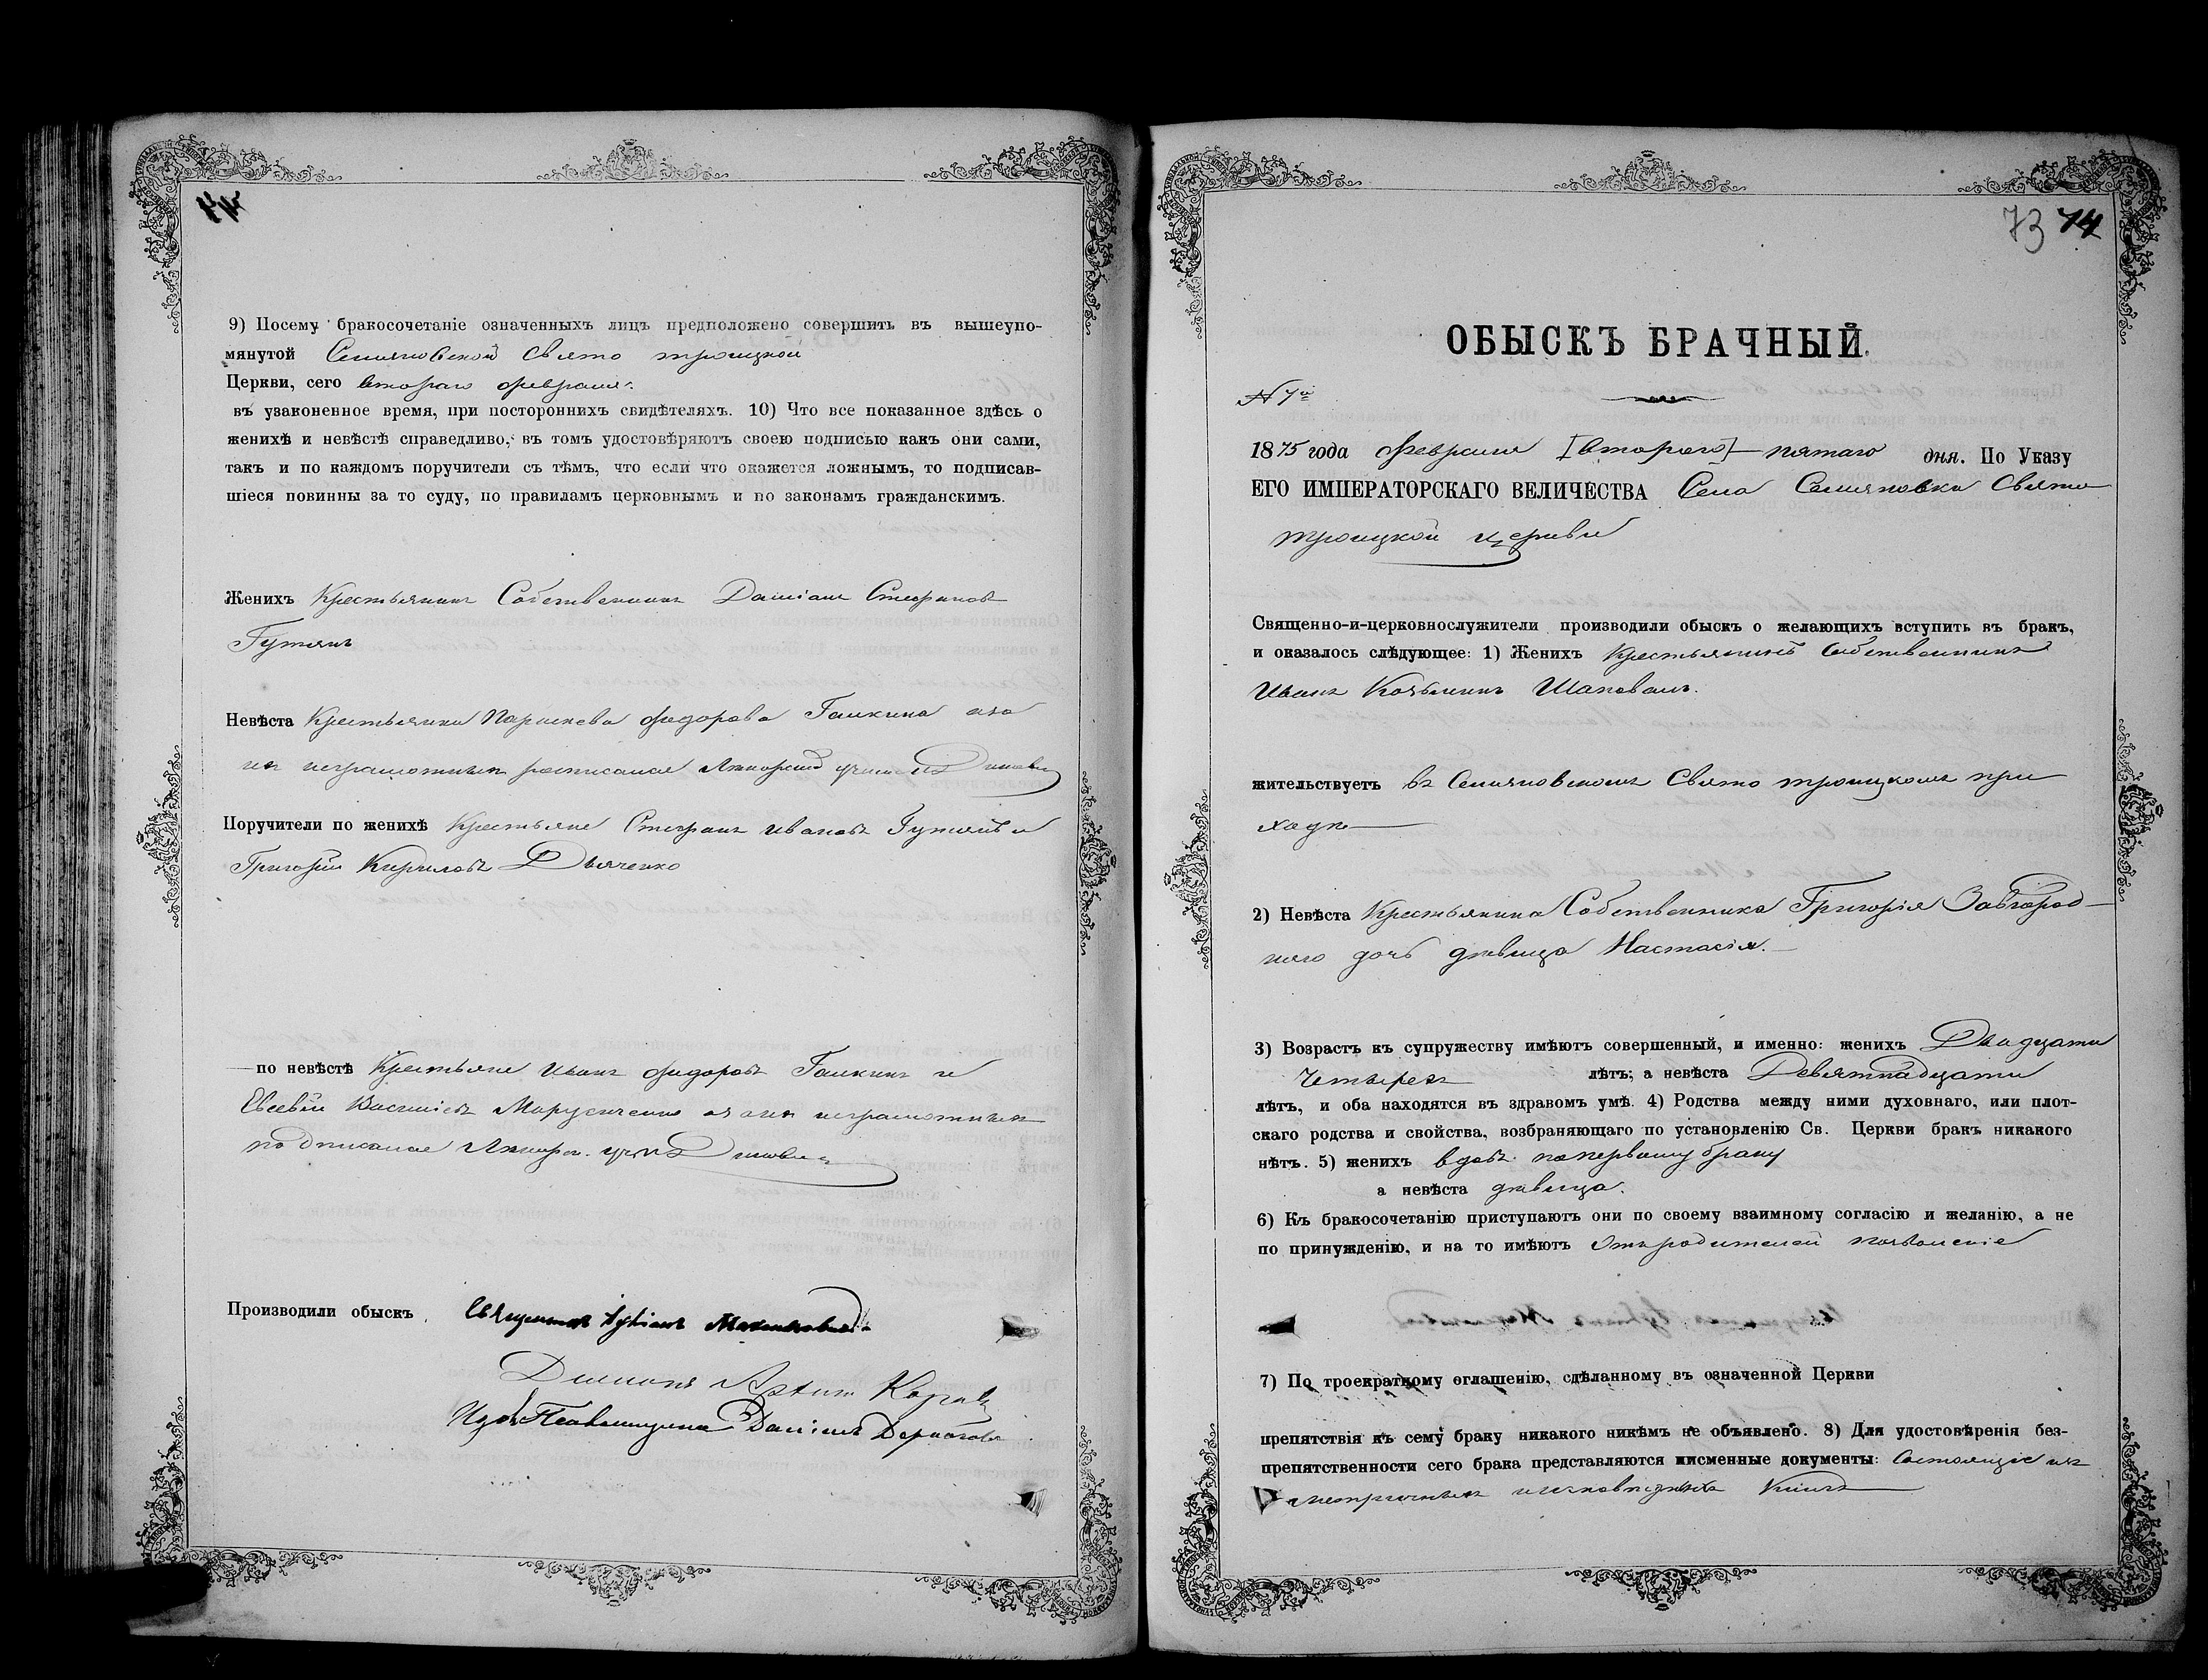 9) Посему бракосочетаніе означенныхъ лицъ предположено совершить въ вышеупо-
мянутой Семяновской Свято троицкой
Церкви, сего втораго февраля.
въ узаконенное время, при постороннихъ свидѣтеляхъ. 10) Что все показанное здѣсь о
женихѣ и невѣстѣ справедливо, въ томъ удостовѣряютъ своею подписью какъ они сами,
такъ и по каждомъ поручители съ тѣмъ, что если что окажется ложнымъ, то подписав-
шіеся повинны за то суду, по правиламъ церковнымъ и по законамъ гражданскимъ.
Женихъ Крестьянинъ Собственникъ Даміанъ Стефановъ
Гутянъ
Невѣста Крестьянка Параскева Федорова Галкина аза
ихъ неграмотныхъ росписался
Поручители по женихѣ Крестьяне Стефанъ Ивановъ Гутянъ и
Григорій Кириловъ Дьяченко
по невѣстѣ Крестьяне Иванъ Федоровъ Галкинъ и
Евсевій Василіевъ Марусиченко а за ихъ неграмотныхъ
подписался
Производили обыскъ Священникъ
Діаконъ
Даніилъ
73 74
ОБЫСКЪ БРАЧНЫЙ.
N 7й
1875 года Февраля [втораго] пятаго дня. По Указу
ЕГО ИМПЕРАТОРСКАГО ВЕЛИЧЕСТВА Села Семяновки Свято
троицкой церкви
Священно-и-церковнослужители производили обыскъ о желающихъ вступить въ бракъ,
и оказалось слѣдующее: 1) Женихъ Крестьянинъ Собственникъ
Иванъ Козьминъ Шаповалъ.
жительствуетъ въ Семяновскомъ Свято троицкомъ при
ходѣ
2) Невѣста Крестьянина Собственника Григорія Завгород-
няго дочь дѣвица Настасія.
3) Возрастъ къ супружеству имѣютъ совершенный, и именно: женихъ Двадцати
Четырехъ лѣтъ; а невѣста Девятнадцати
лѣтъ, и оба находятся въ здравомъ умѣ. 4) Родства между ними духовнаго, или плот-
скаго родства и свойства, возбраняющаго по установленію Св. Церкви бракъ никакого
нѣтъ. 5) женихъ вдовъ по первому браку
а невѣста дѣвица.
6) Къ бракосочетанію приступаютъ они по своему взаимному согласію и желанію, а не
по принужденію, и на то имѣютъ Отъ родителей позволеніе
7) По троекратному оглашенію, сдѣланному въ означенной Церкви
препятствія къ сему браку никакого никѣмъ не объявлено. 8) Для удостовѣренія без-
препятственности сего брака представляются писменные документы: Состоящіе изъ
метричныхъ и исповѣдныхъ Книгъ